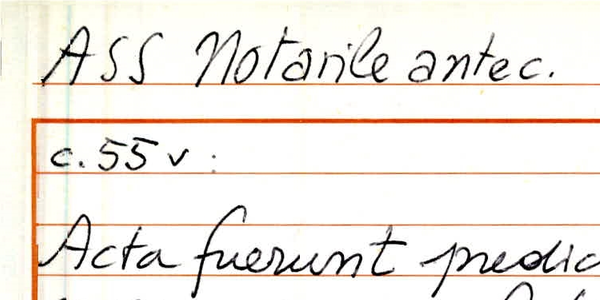 ASS Notarile antec.
c. 55 v :
Acta fuerunt predic